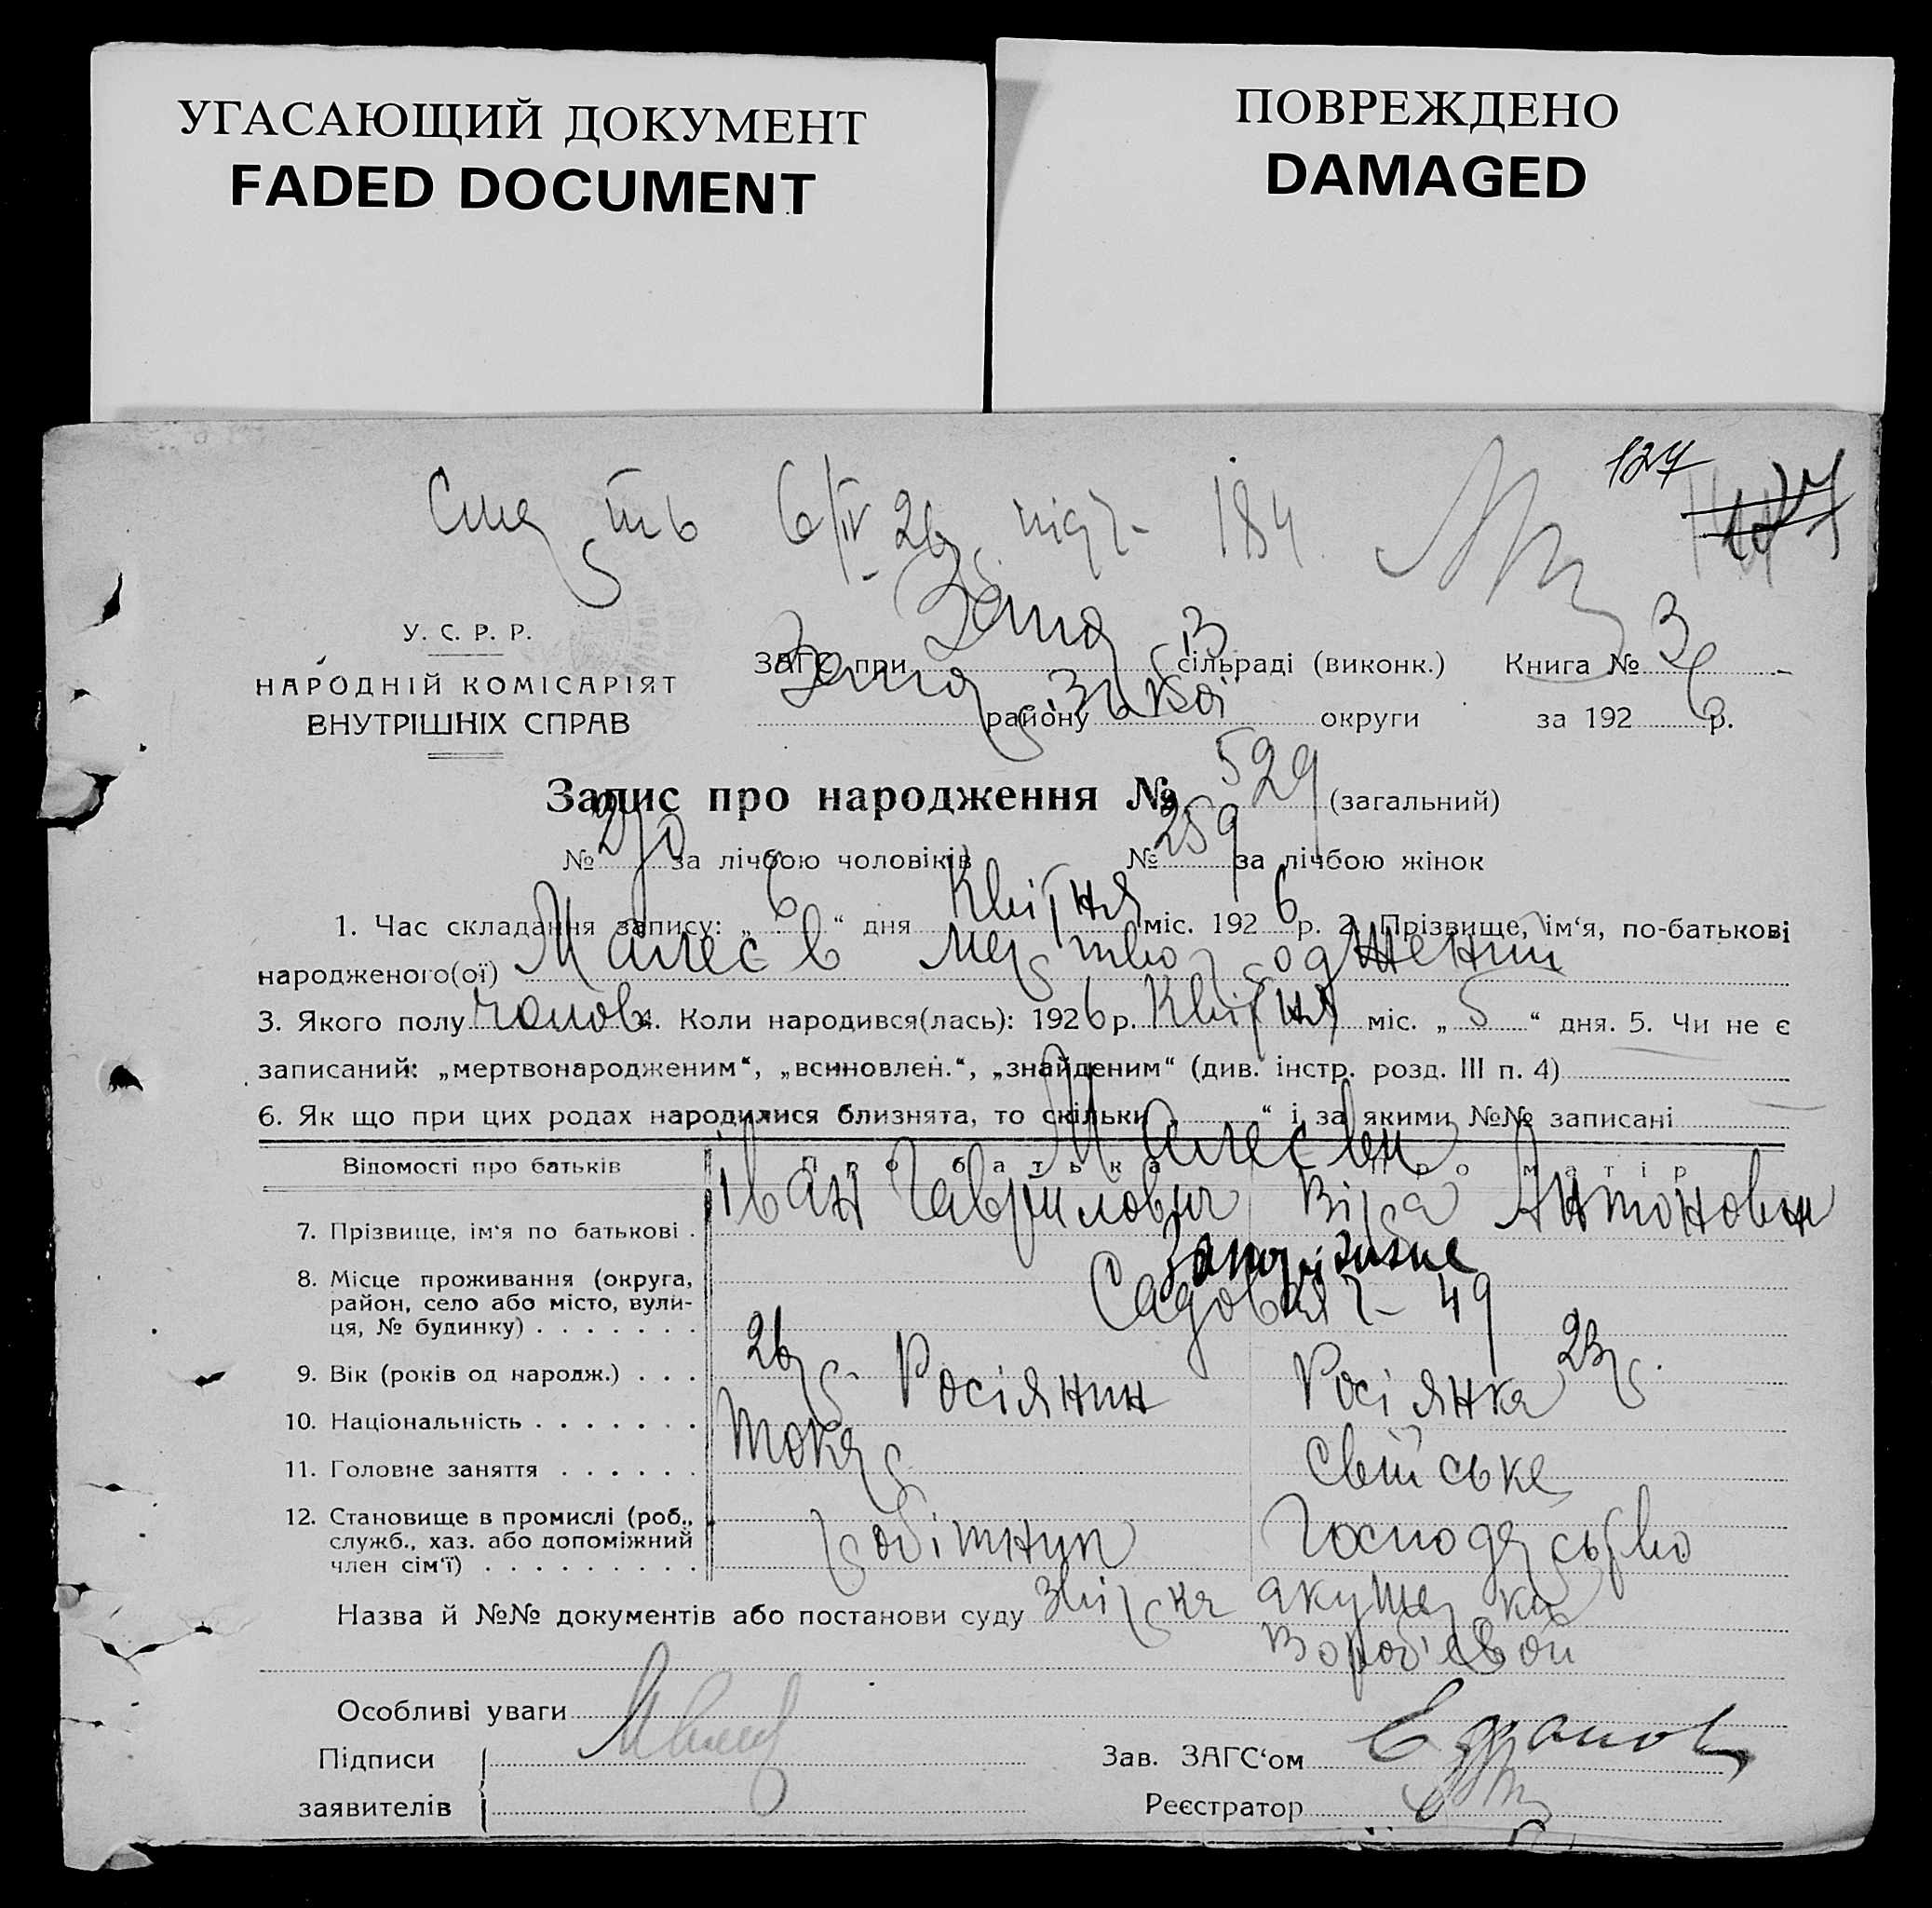 УГАСАЮЩИЙ ДОКУМЕНТ
FADED DOCUMENT
ПОВРЕЖДЕНО
DAMAGED
127
6/IV 26 184.
У. С. Р. Р.
НАРОДНІЙ КОМІСАРІЯТ
ВНУТРІШНІХ СПРАВ
ЗАГС при сільраді (виконк.) Книга № 3
району округи за 192 6 р.
Запис про народження № 529 (загальний)
№ 270 за лічбою чоловіків № 259 за лічбою жінок
1. Час складання запису: „ 6 “ дня Квітня міс. 192 6 р. 2. Прізвище, ім‘я, по-батькові
народженого(ої)
3. Якого полу чолов. 4. Коли народився(лась): 1926 р. Квітня міс. „ 5 “ дня. 5. Чи не є
записаний: „мертвонародженим“, „всиновлен.“, „знайденим“ (див. інстр. розд. III п. 4)
6. Як що при цих родах народилися близнята, то скільки “ і за якими №№ записані
Відомості про батьків Про батька Про матір
7. Прізвище, ім‘я по батькові . Іван Гаврилович Віра Антоновн
Запоріжже
8. Місце проживання (округа,
район, село або місто, вули-
ця, № будинку) . . . . . . . Садовая 49
9. Вік (років од народж.) . . . 26 р. 23 р.
10. Національність . . . . . . . Росіянин Росіянка
11. Головне заняття . . . . . . Токар свійське
12. Становище в промислі (роб.,
служб., хаз. або допоміжний
член сім‘ї) . . . . . . . . . робітник Господарство
Назва й №№ документів або постанови суду Звірка акушерки
Вороб'євой
Особливі уваги
Підписи
заявителів
Зав. ЗАГС‘ом
Реєстратор